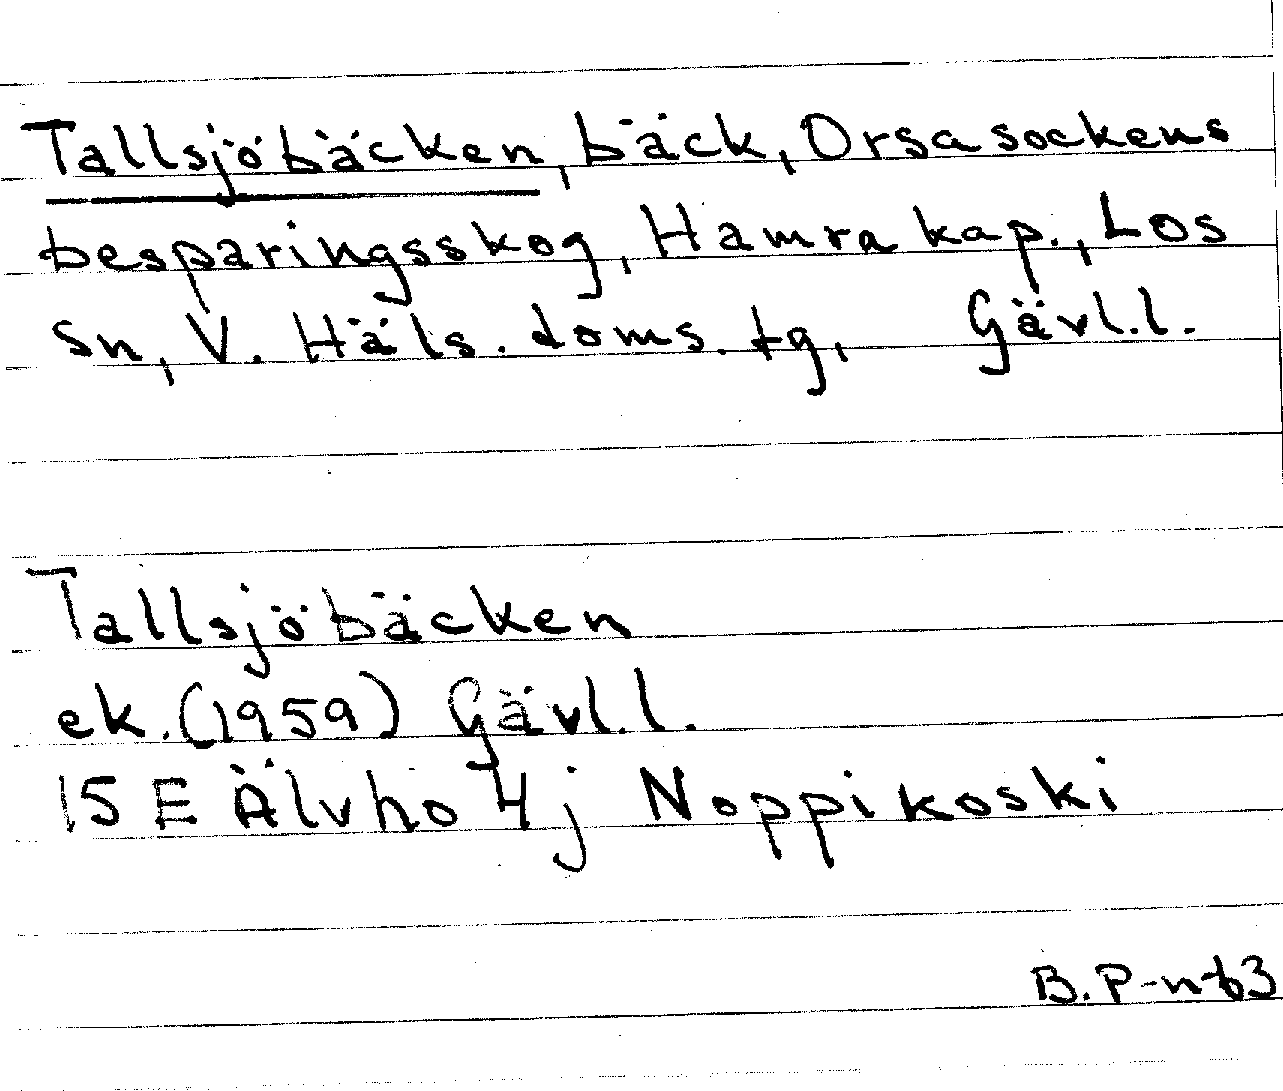 Tallsjöbäcken, bäck, Orsa sockens
besparingsskog, Hamra kap., Los
sn, V. Häls. doms. tg, Gävl.l.
Tallsjöbäcken
ek. (1959) Gävl.l.
15 E Älvho 4j Noppikoski
B. P-n 63